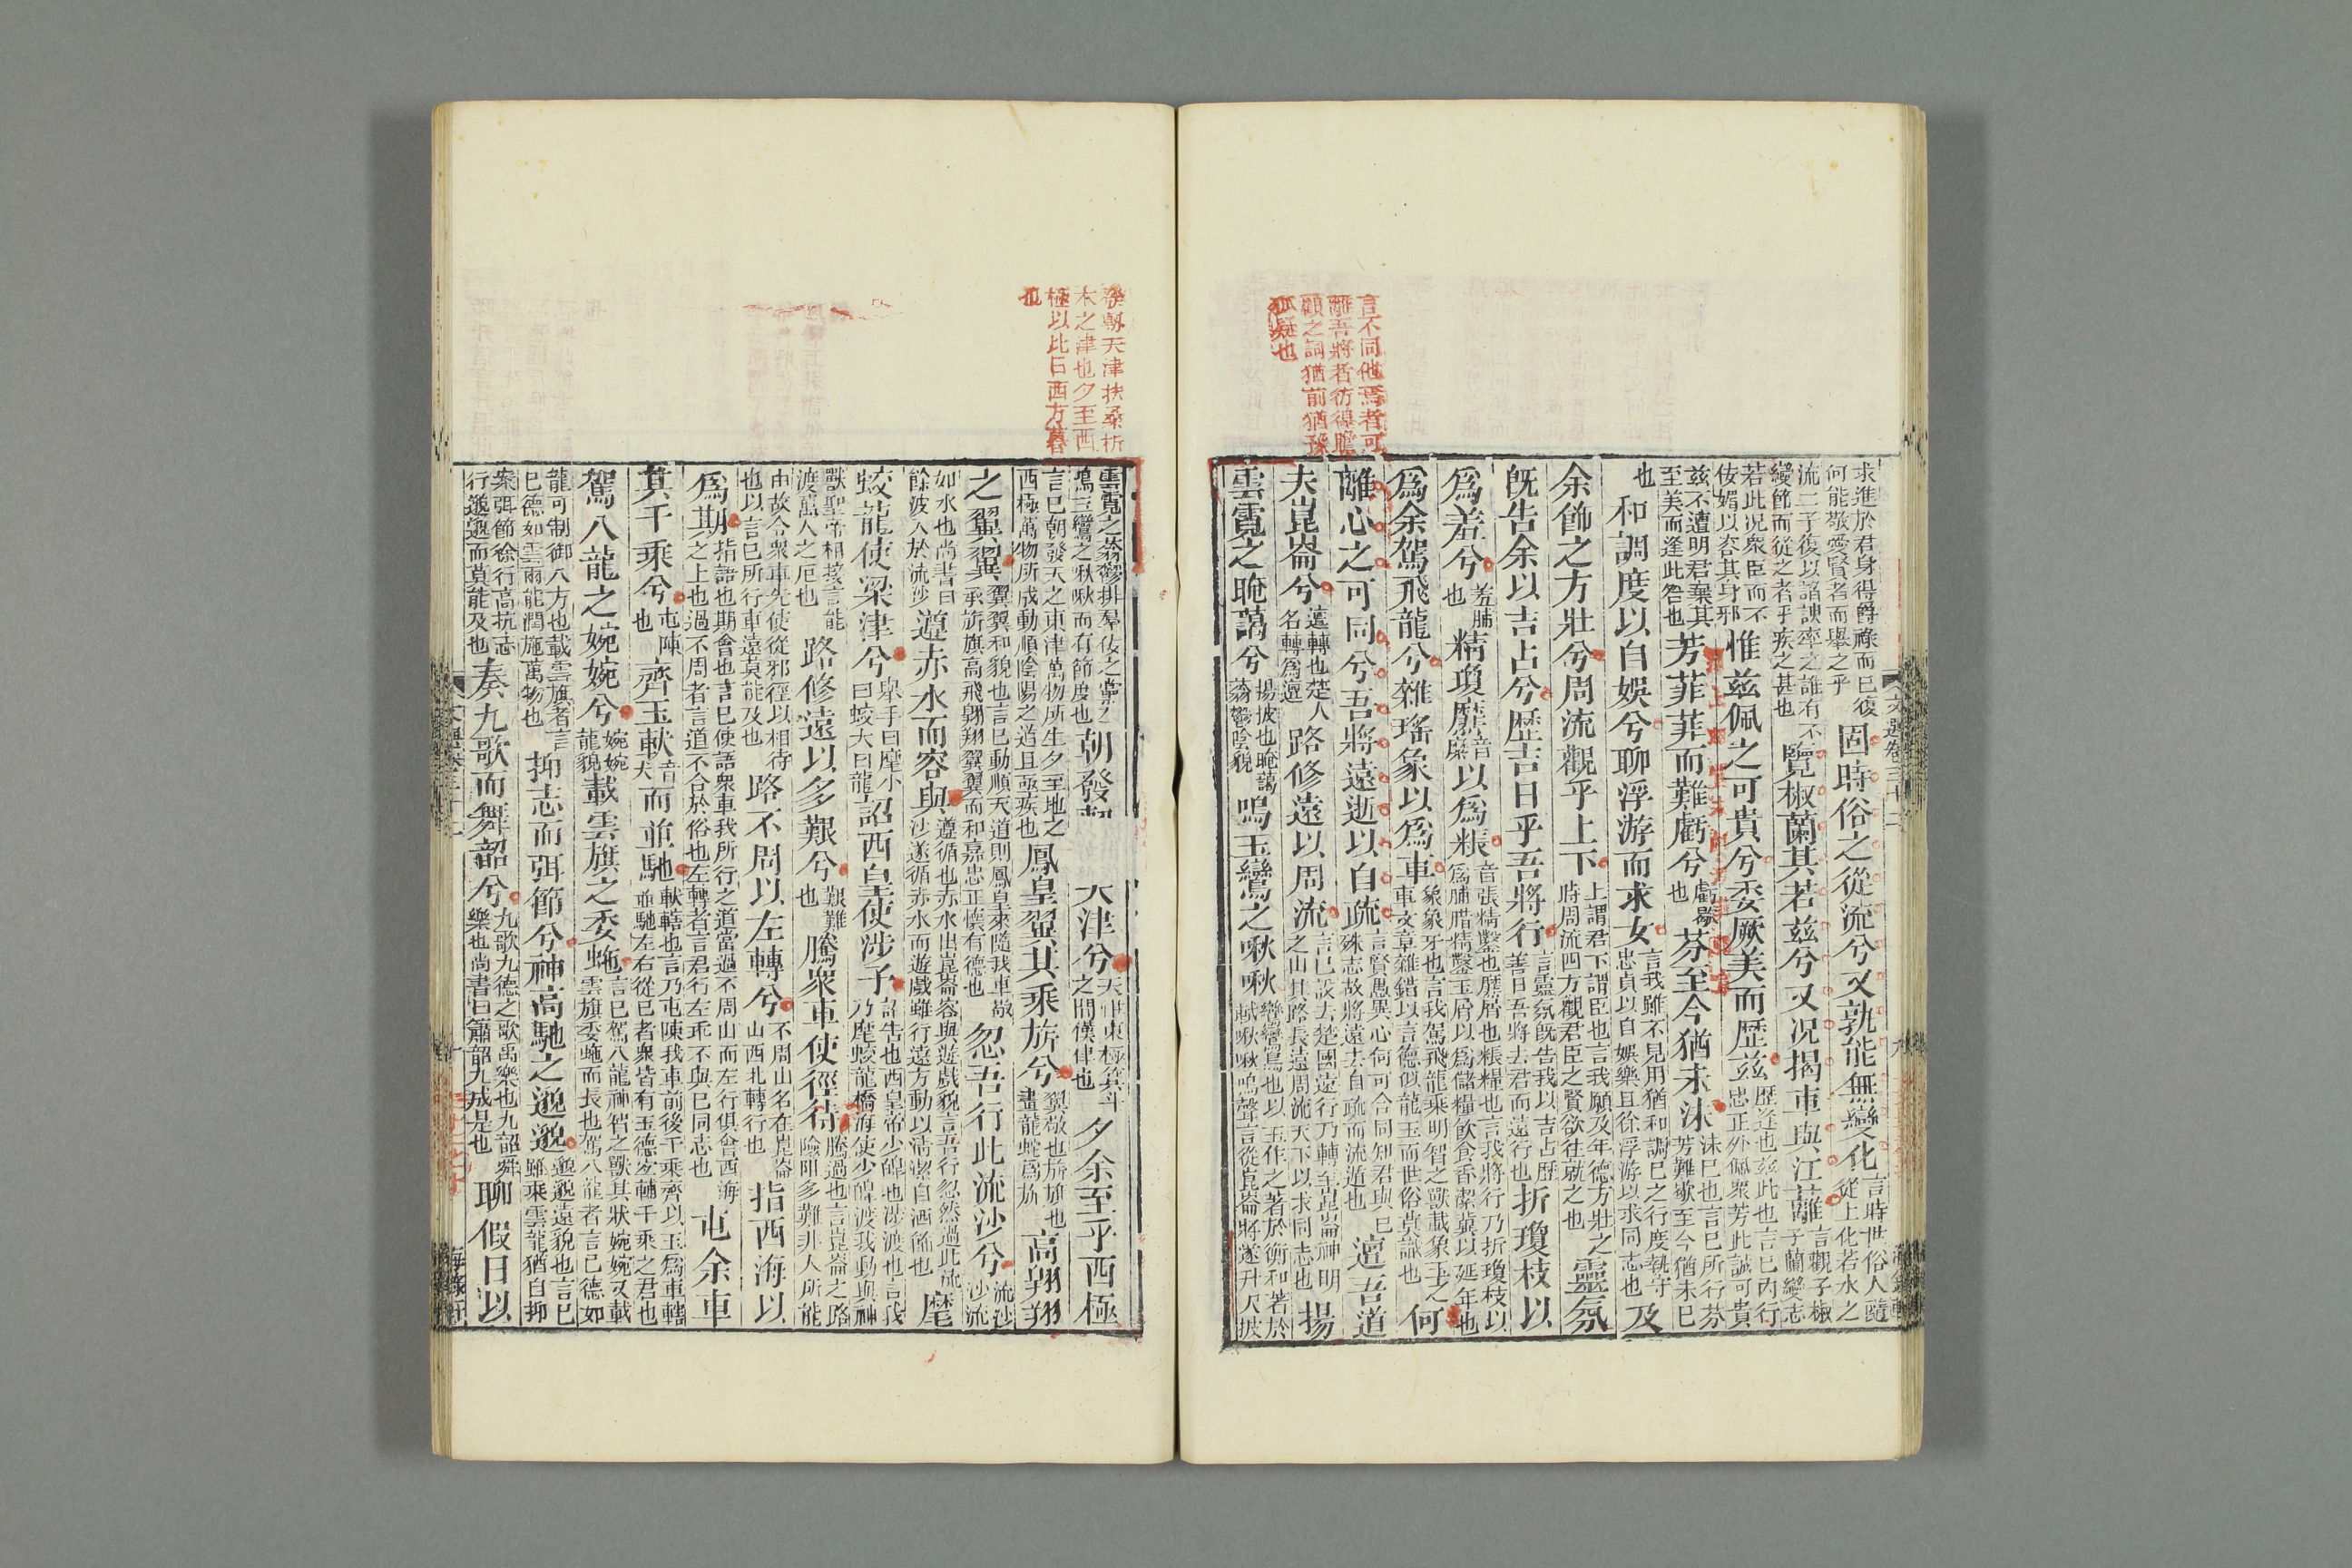 言不同他焉者可
離吾將者彷徨瞻
顧之詞猶前猶豫
狐疑也
求進於君身得爵祿而已復
何能敬愛賢者而舉之乎
固時俗之從流兮又孰能無變化
言時世俗人隨
從上化若水之
流二子復以諂諛率之誰有不
變節而從之者乎疾之甚也
覽椒蘭其若茲兮又況揭車與江蘺
言觀子椒
子蘭變志
若此況衆臣而不
佞媚以容其身邪
惟茲佩之可貴兮委厥美而歷茲
歷逝也茲此也言已內行
忠正外佩衆芳此誠可貴
茲不遭明君棄其
至美而逢此咎也
芳菲菲而難虧兮
虧歇
也
芬至今猶未沬
沬已也言已所行芬
芳難歇至今猶未已
也
和調度以自娛兮聊浮游而求女
言我雖不見用猶和調已之行度執守
忠貞以自娛樂且徐浮游以求同志也
及
余飾之方壯兮周流觀乎上下
上謂君下謂臣也言我願及年德方壯之
時周流四方觀君臣之賢欲往就之也
靈氛
既告余以吉占兮歷吉日乎吾將行
言靈氛既告我以吉占歷
善日吾將去君而遠行也
折瓊枝以
爲羞兮
羞脯
也
精瓊爢
音
縻
以爲粻
音張精鑿也爢屑也粻糧也言我將行乃折瓊枝以
爲脯腊精鑿玉屑以爲儲糧飲食香潔冀以延年也
爲余駕飛龍兮雜瑤象以爲車
象象牙也言我駕飛龍乘明智之獸載象玉之
車文章雜錯以言德似龍玉而世俗莫識也
何
離心之可同兮吾將遠逝以自疏
言賢愚異心何可合同知君與已
殊志故將遠去自疏而流遁也
邅吾道
夫崑崙兮
邅轉也楚人
名轉爲邅
路修遠以周流
言已設去楚國遠行乃轉至崑崙神明
之山其路長遠周流天下以求同志也
揚
雲霓之晻藹兮
揚披也晻藹
蓊鬱陰貌
鳴玉鸞之啾啾
鸞鸞鳥也以玉作之著於衡和著於
軾啾啾鳴聲言從崑崙將遂升天披
發朝天津扶桑析
木之津也夕至西
極以比日西方暮
也
雲霓之蓊鬱排羣佞之黨
鳴玉鸞之啾啾而有節度也
朝發軔
天津兮
天津東極箕斗
之間漢津也
夕余至乎西極
言已朝發天之東津萬物所生夕至地之
西極萬物所成動順陰陽之道且亟疾也
鳳皇翼其乘旂兮
翼敬也旂旗也
畫龍蛇爲旂
高翱翔
之翼翼
翼翼和貌也言已動順天道則鳳皇來隨我車敬
承旂旗高飛翱翔翼翼而和嘉忠正懷有德也
忽吾行此流沙兮
流沙
沙流
如水也尚書曰
餘波入於流沙
遵赤水而容與
遵循也赤水出崑崙容與遊戲貌言吾行忽然過此流
沙遂循赤水而遊戲雖行遠方動以清潔自洒飾也
麾
蛟龍使梁津兮
舉手曰麾小
曰蛟大曰龍
詔西皇使涉予
詔告也西皇帝少皞也涉渡也言我
乃麾蛟龍橋海使少皞渡我動與神
獸聖帝相接言能
渡萬人之厄也
路修遠以多艱兮
艱難
也
騰衆車使徑待
騰過也言崑崙之路
險阻多難非人所能
由故令衆車先使從邪徑以相待
也以言已所行車遠莫能及也
路不周以左轉兮
不周山名在崑崙
山西北轉行也
指西海以
爲期
指語也期會也言已使語衆車我所行之道當過不周山而左行俱會西海
之上也過不周者言道不合於俗也左轉者言君行左乖不與已同志也
屯余車
其千乘兮
屯陳
也
齊玉軑
音
大
而並馳
軑轄也言乃屯陳我車前後千乘齊以玉爲車轄
並馳左右從已者衆皆有玉德宏輔千乘之君也
駕八龍之婉婉兮
婉婉
龍貌
載雲旗之委蛇
言已駕八龍神智之獸其狀婉婉又載
雲旗委蛇而長也駕八龍者言已德如
龍可制御八方也載雲旗者言
已德如雲雨能潤施萬物也
抑志而弭節兮神高馳之邈邈
邈邈遠貌也言已
雖乘雲龍猶自抑
案弭節徐行高抗志
行邈邈而莫能及也
奏九歌而舞韶兮
九歌九德之歌禹樂也九韶舜
樂也尚書曰簫韶九成是也
聊假日以